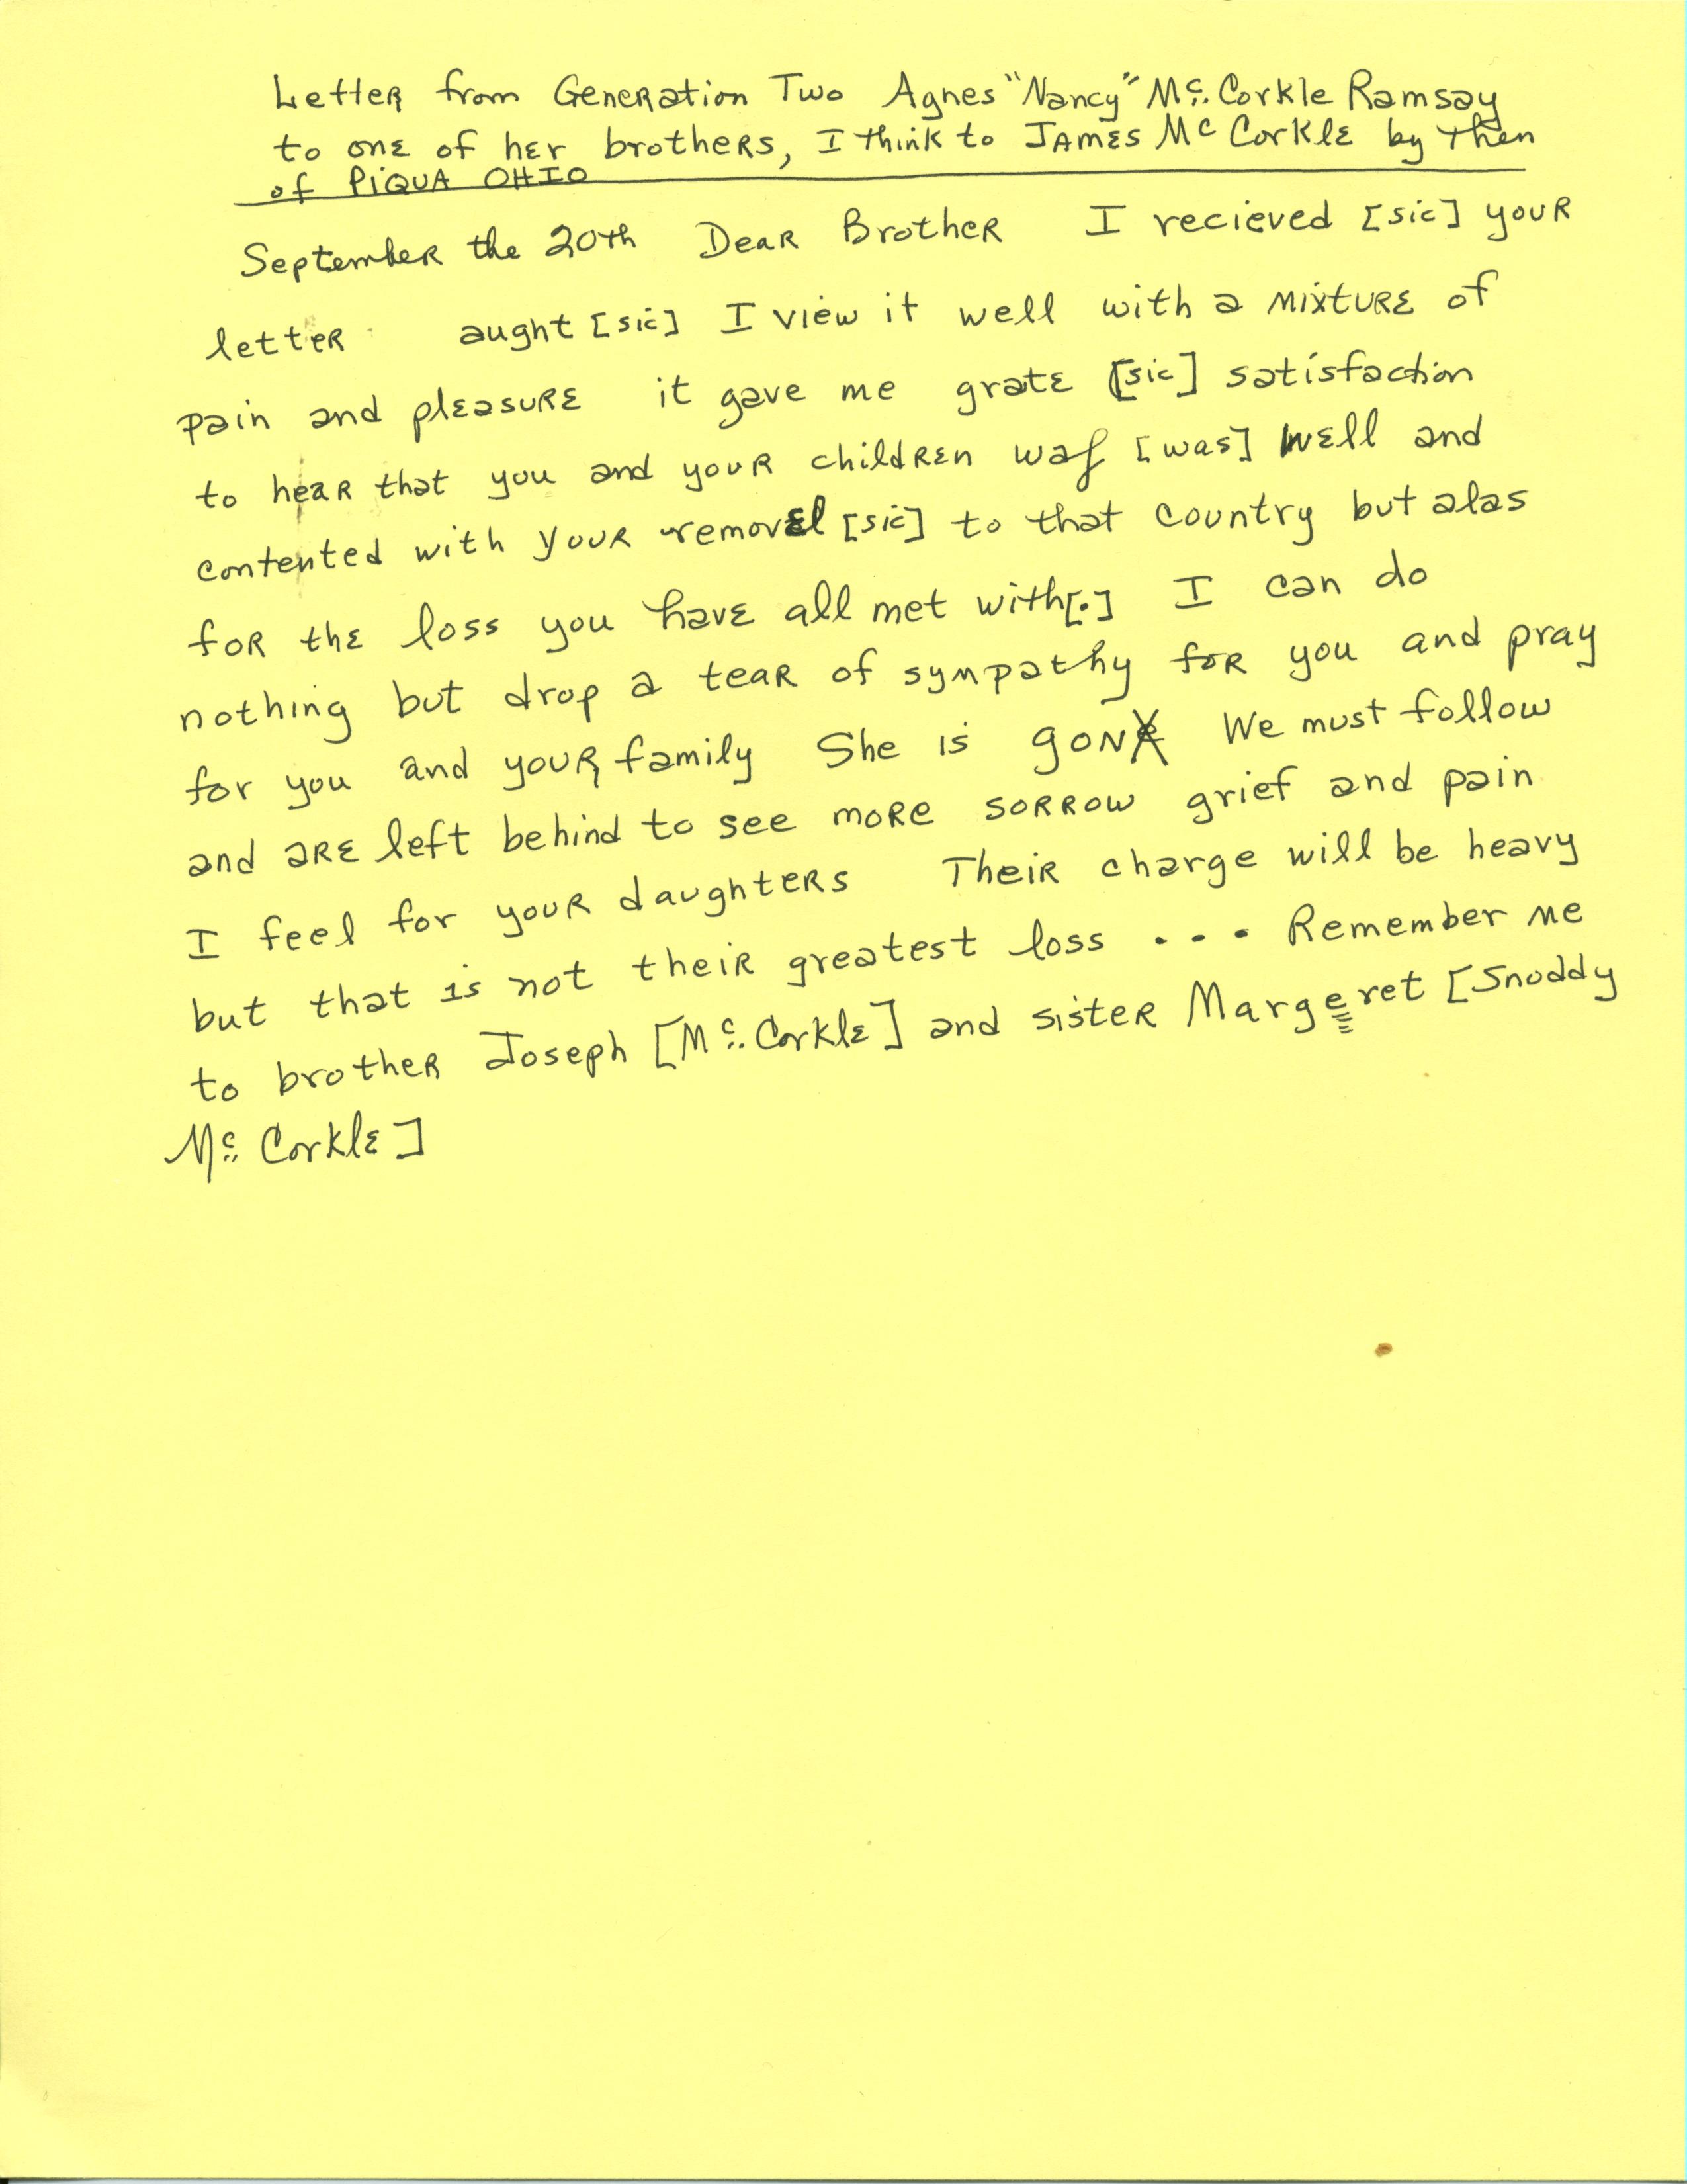 Letter from Generation Two Agnes "Nancy" Mc. Corkle Ramsay
to one of her brothers, I think to James Mc Corkle by then
of PIQUA OHIO
September the 20th Dear Brother I recieved [sic] your
letter aught [sic] I view it well with a mixture of
pain and pleasure it gave me grate [sic] satisfaction
to hear that you and your children waſ [was] well and
contented with your removel [sic] to that country but alas
for the loss you have all met with[.] I can do
nothing but drop a tear of sympathy for you and pray
for you and your family She is gone We must follow
and are left behind to see more sorrow grief and pain
I feel for your daughters Their charge will be heavy
but that is not their greatest loss . . . Remember me
to brother Joseph [Mc. Corkle] and sister Margeret [Snoddy
Mc. Corkle]